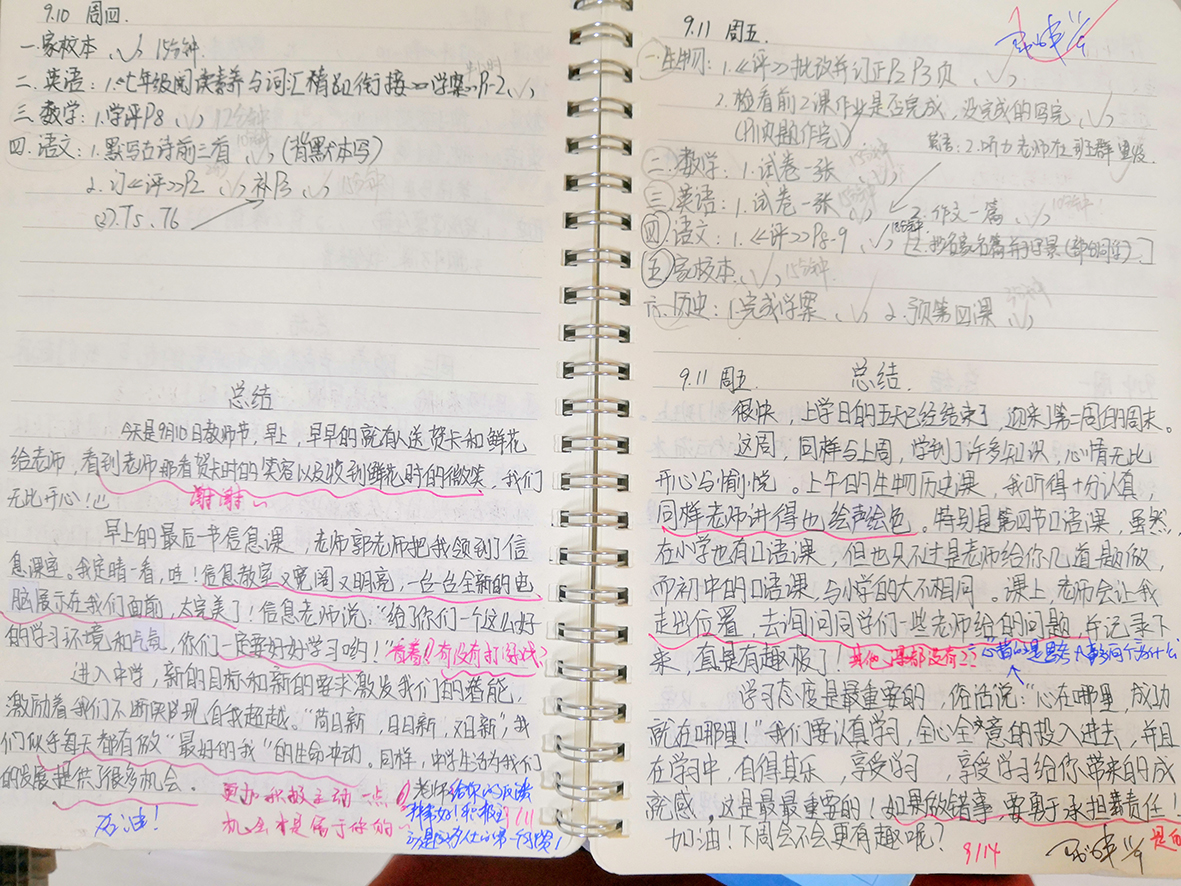 9.10 周四.
一.家校本、√ 15分钟
二.英语:1.《七年级阅读素养与词汇精品衔接》学案P1-2、√
三.数学:1.学评P8、√ 12分钟
四.语文:1.默写古诗前三首、√(背默本写)
2.订《评》P2、√ 补P3、√ 15分钟
②.75、76
总结
今天是9月10日教师节,早上,早早的就有人送贺卡和鲜花
给老师,看到老师那看贺卡时的笑容以及收到鲜花时的微笑,我们
无比开心!
谢谢~
早上的最后一节信息课,老师郭老师把我领到了信
息课室。我定睛一看,哇!信息教室又宽阔又明亮,一台台全新的电
脑展示在我们面前,太完美了!信息老师说:“给了你们一个这么好
的学习环境和气氛,你们一定要好好学习哟!”有没有打游戏?
进入中学,新的目标和新的要求激发我们的潜能,
激励着我们不断实现自我超越。“苟日新,日日新,又日新”,我
们似乎每天都有做“最好的我”的生命冲动。同样,中学生活为我们
的发展提供了很多机会。
更加积极主动一点
机会才是属于你的~
加油!
老师给你的
9/11
9.11 周五.
一.生物:1.《评》批改并订正P2 P3页、√
2.检看前2课作业是否完成,没完成的写完、√
英语:2.听力老师在班群里发.
二.数学:1.试卷一张、√
三.英语:1.试卷一张、√ 2.作文一篇、√
四.语文:1.《评》P8-9、√
五.家校本、√ 15分钟
六.历史:1.完成学案、√ 2.预第四课、√
9.11 周五. 总结.
很快,上学日的五天已经结束了,迎来了第二周的周末。
这周,同样与上周,学到了许多知识,心情无比
开心与愉悦。上午的生物历史课,我听得十分认真,
同样老师讲得也绘声绘色。特别是第四节口语课,虽然,
在小学也有口语课,但也只不过是老师给你几道题做,
而初中的口语课,与小学的大不相同。课上,老师会让我
走出位置,去询问同学们一些老师给的问题,并记录下
来,真是有趣极了!其他课都没有??
学习态度是最重要的,俗话说:“心在哪里,成功
就在哪里!”我们要认真学习,全心全意的投入进去,并且
在学习中,自得其乐,享受学习,享受学习给你带来的成
就感,这是最最重要的!如果做错事,要勇于承担责任!
加油!下周会不会更有趣呢?
9/14